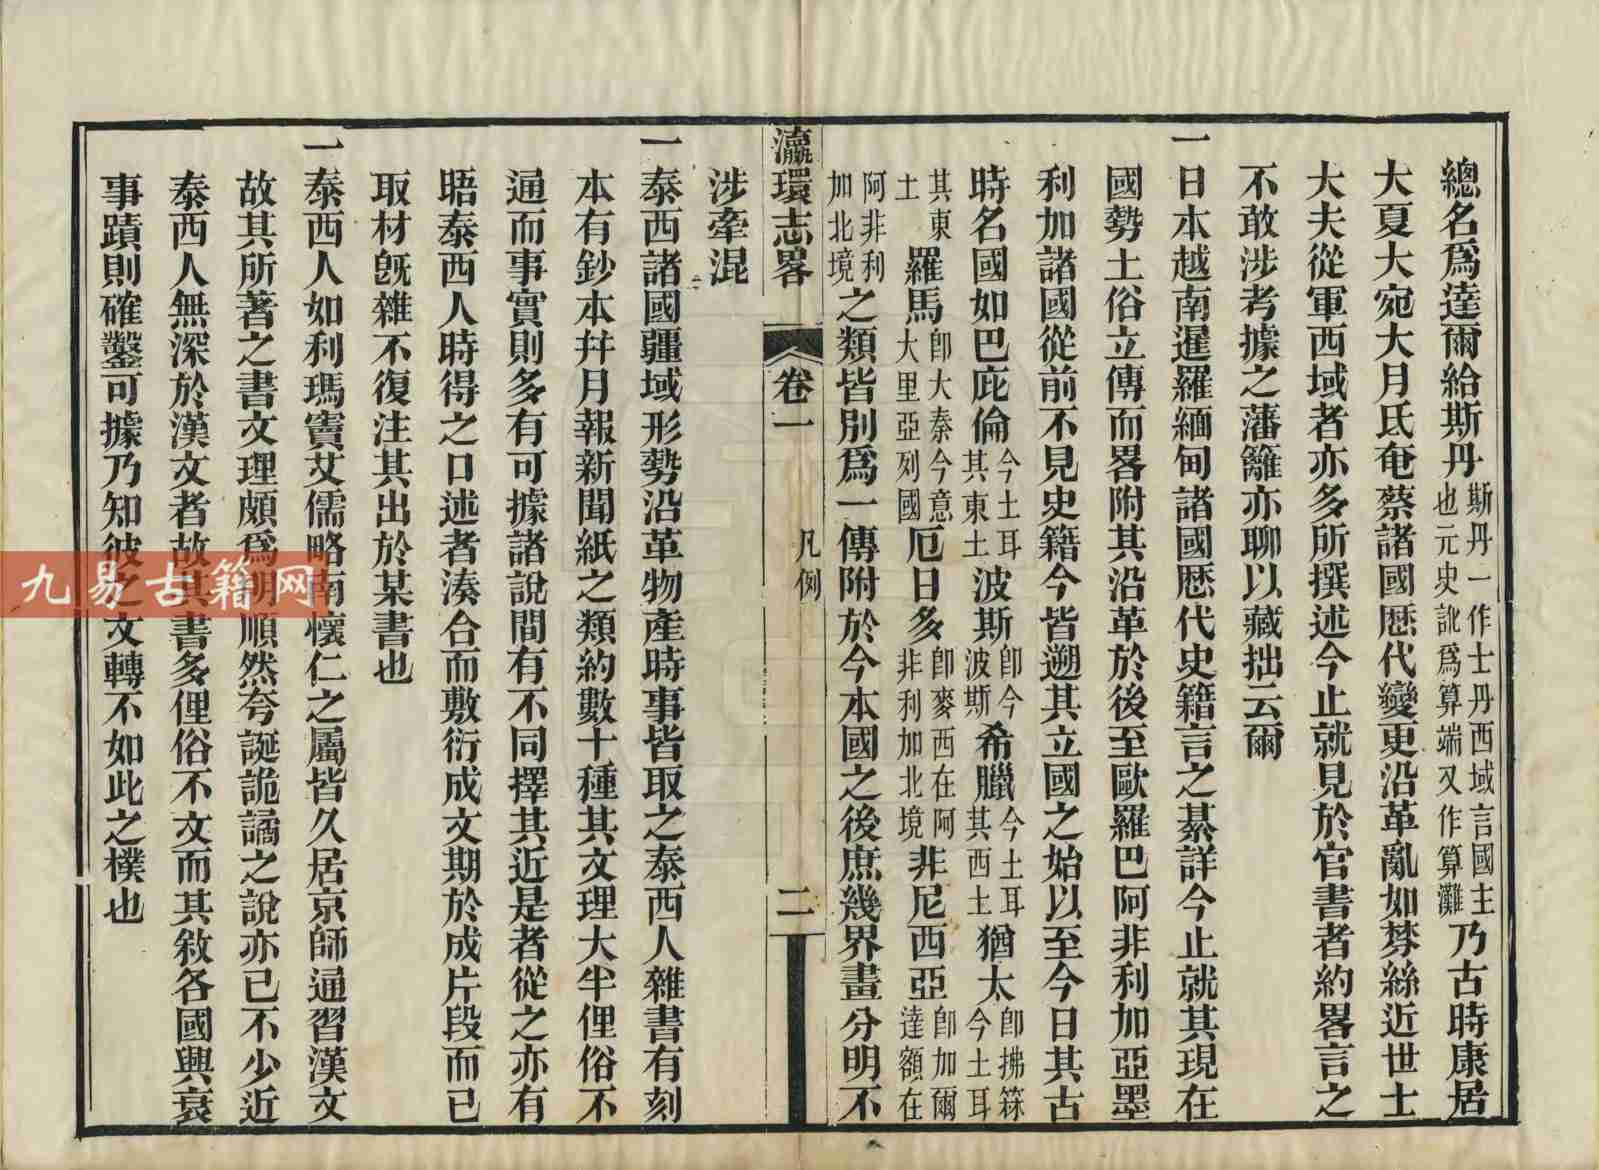 總名爲達爾給斯丹斯丹一作士丹西域言國主也元史訛爲算端又作算灘乃古時康居
大夏大宛大月氏奄蔡諸國歷代變更沿革亂如棼絲近世士
大夫從軍西域者亦多所撰述今止就見於官書者約畧言之
不敢涉考據之藩籬亦聊以藏拙云爾
一日本越南暹羅緬甸諸國歷代史籍言之綦詳今止就其現在
國勢土俗立傳而畧附其沿革於後至歐羅巴阿非利加亞墨
利加諸國從前不見史籍今皆遡其立國之始以至今日其古
時名國如巴庇倫今土耳其東土波斯卽今波斯希臘今土耳其西土猶太卽拂菻今土耳
其東土羅馬卽大秦今意大里亞列國厄日多卽麥西在阿非利加北境非尼西亞卽加爾達額在
阿非利加北境之類皆別爲一傳附於今本國之後庶幾界畫分明不
瀛環志畧 卷一 凡例 二
涉牽混
一泰西諸國疆域形勢沿革物產時事皆取之泰西人雜書有刻
本有鈔本幷月報新聞紙之類約數十種其文理大半俚俗不
通而事實則多有可據諸說間有不同擇其近是者從之亦有
晤泰西人時得之口述者湊合而敷衍成文期於成片段而已
取材旣雜不復注其出於某書也
一泰西人如利瑪竇艾儒略南懷仁之屬皆久居京師通習漢文
故其所著之書文理頗爲明順然夸誕詭譎之說亦已不少近
泰西人無深於漢文者故其書多俚俗不文而其敘各國興衰
事蹟則確鑿可據乃知彼之文轉不如此之樸也
九易古籍网